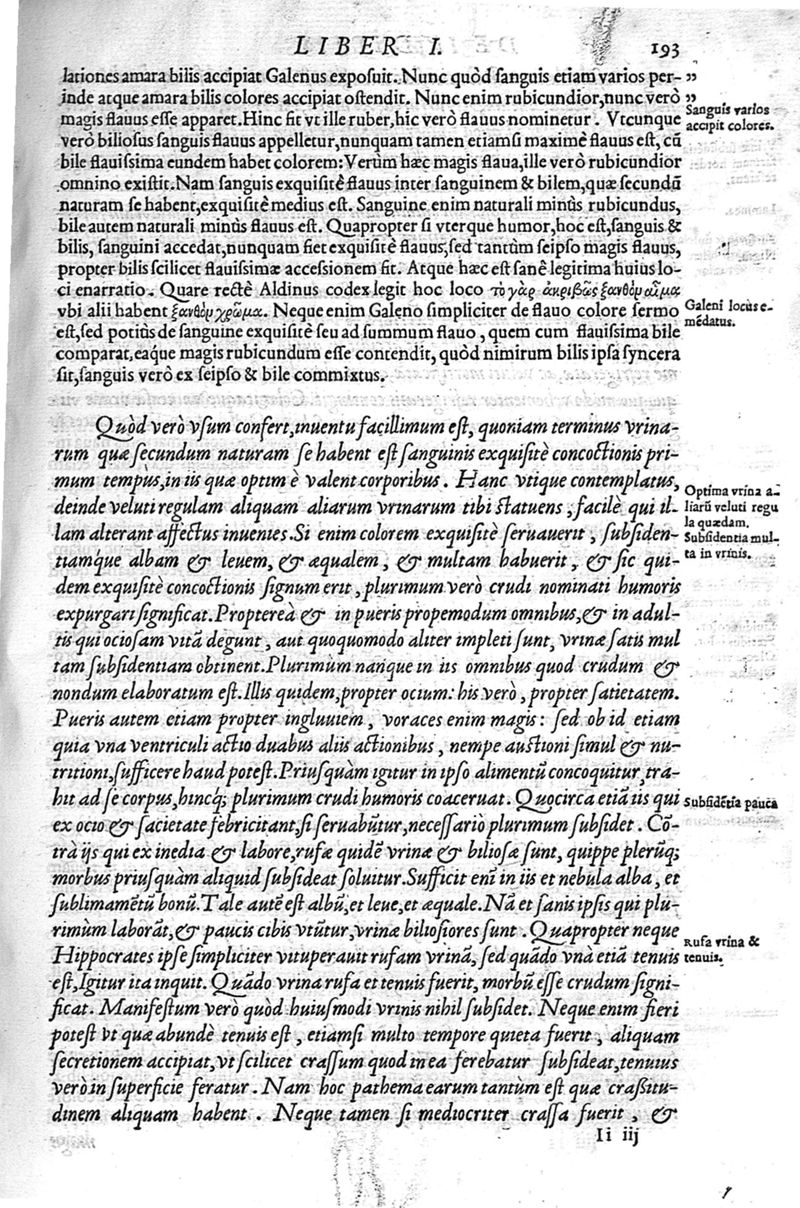 LIBER I. 193
lationes amara bilis accipiat Galenus exposuit. Nunc quòd sanguis etiam varios per- ”
inde atque amara bilis colores accipiat ostendit. Nunc enim rubicundior, nunc verò ”
magis flauus esse apparet. Hinc fit vt ille ruber, hic verò flauus nominetur. Vtcunque
Sanguis varios
accipit colores.
verò biliosus sanguis flauus appelletur, nunquam tamen etiamsi maximè flauus est, cũ
bile flauissima eundem habet colorem: Verùm hæc magis flaua, ille verò rubicundior
omnino existit. Nam sanguis exquisitè flauus inter sanguinem & bilem, quæ secundũ
naturam se habent, exquisitè medius est. Sanguine enim naturali minùs rubicundus,
bile autem naturali minùs flauus est. Quapropter si vterque humor, hoc est, sanguis &
bilis, sanguini accedat, nunquam fiet exquisitè flauus, sed tantùm seipso magis flauus,
propter bilis scilicet flauissimæ accessionem fit. Atque hæc est sanè legitima huius lo-
ci enarratio. Quare rectè Aldinus codex legit hoc loco τὸ γὰρ ἀκριβῶς ξανθὸν αἷμα
vbi alii habent ξανθὸν χρῶμα. Neque enim Galeno simpliciter de flauo colore sermo
Galeni locus e-
mēdatus.
est, sed potiùs de sanguine exquisitè seu ad summum flauo, quem cum flauissima bile
comparat, eaque magis rubicundum esse contendit, quòd nimirum bilis ipsa syncera
sit, sanguis verò ex seipso & bile commixtus.
Quòd verò vsum confert, inuentu facillimum est, quoniam terminus vrina-
rum quæ secundum naturam se habent est sanguinis exquisitè concoctionis pri-
mum tempus, in iis quæ optimè valent corporibus. Hanc vtique contemplatus,
deinde veluti regulam aliquam aliarum vrinarum tibi statuens, facilè qui il-
Optima vrina a-
liarũ veluti regu
la quædam.
lam alterant affectus inuenies. Si enim colorem exquisitè seruauerit, subsiden-
Subsidentia mul-
ta in vrinis.
tiamque albam & leuem, & æqualem, & multam habuerit, & sic qui-
dem exquisitè concoctionis signum erit, plurimum verò crudi nominati humoris
expurgari significat. Propterea & in pueris propemodum omnibus, & in adul-
tis qui ociosam vitā degunt, aut quoquomodo aliter impleti sunt, vrinæ satis mul
tam subsidentiam obtinent. Plurimùm nanque in iis omnibus quod crudum &
nondum elaboratum est. Illis quidem, propter ocium: his verò, propter satietatem.
Pueris autem etiam propter ingluuiem, voraces enim magis: sed ob id etiam
quia vna ventriculi actio duabus aliis actionibus, nempe auctioni simul & nu-
tritioni, sufficere haud potest. Priusquàm igitur in ipso alimentũ concoquitur, tra-
hit ad se corpus, hincq; plurimum crudi humoris coaceruat. Quocirca etiā iis qui
Subsidētia pauca
ex ocio & sacietate febricitant, si seruabũtur, necessariò plurimum subsidet. Cõ-
trà ijs qui ex inedia & labore, rufæ quidẽ vrinæ & biliosæ sunt, quippe plerũq;
morbus priusquàm aliquid subsideat soluitur. Sufficit enĩ in iis et nebula alba, et
sublimamẽtũ bonũ. Tale autẽ est albũ, et leue, et æquale. Nã et sanis ipsis qui plu-
rimùm laborãt, & paucis cibis vtũtur, vrinæ biliosiores sunt. Quapropter neque
Hippocrates ipse simpliciter vituperauit rufam vrinã, sed quãdo vnà etiã tenuis
Rufa vrina &
tenuis.
est, Igitur ita inquit. Quãdo vrina rufa et tenuis fuerit, morbũ esse crudum signi-
ficat. Manifestum verò quòd huiusmodi vrinis nihil subsidet. Neque enim fieri
potest vt quæ abundè tenuis est, etiamsi multo tempore quieta fuerit, aliquam
secretionem accipiat, vt scilicet crassum quod in ea ferebatur subsideat, tenuius
verò in superficie feratur. Nam hoc pathema earum tantùm est quæ crassitu-
dinem aliquam habent. Neque tamen si mediocriter crassa fuerit, &
Ii iij